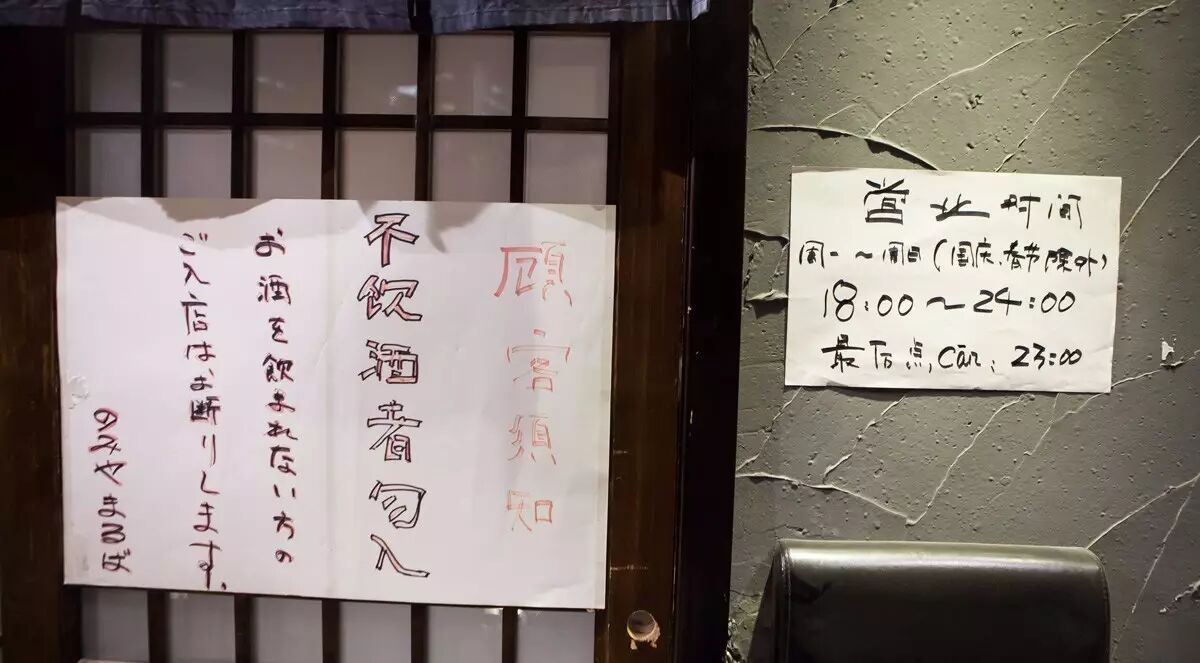 顧客须知
不飲酒者勿入
お酒を飲まれない方の
ご入店はお断りします。
のみやまるば
营业时间
周一～周日(国庆、春节除外)
18:00～24:00
最后点,cān: 23:00